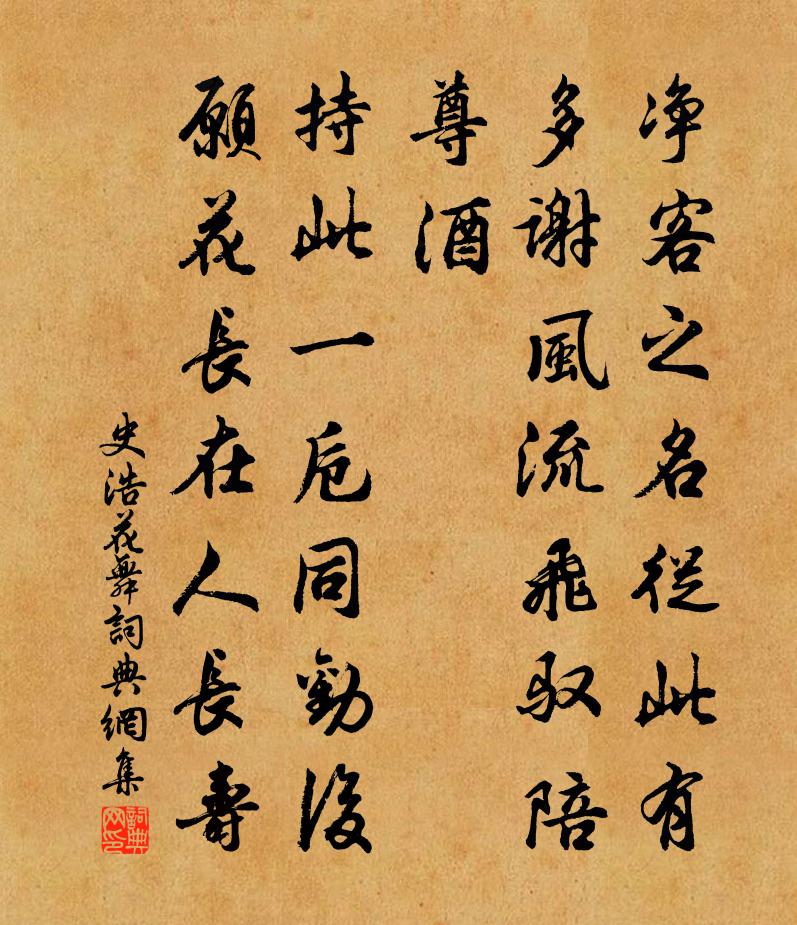 净客之名從此有
多谢風流飛驭陪
尊酒
持此一卮同勸後
願花長在人長壽
史浩花舞詞典網集
詞典网印